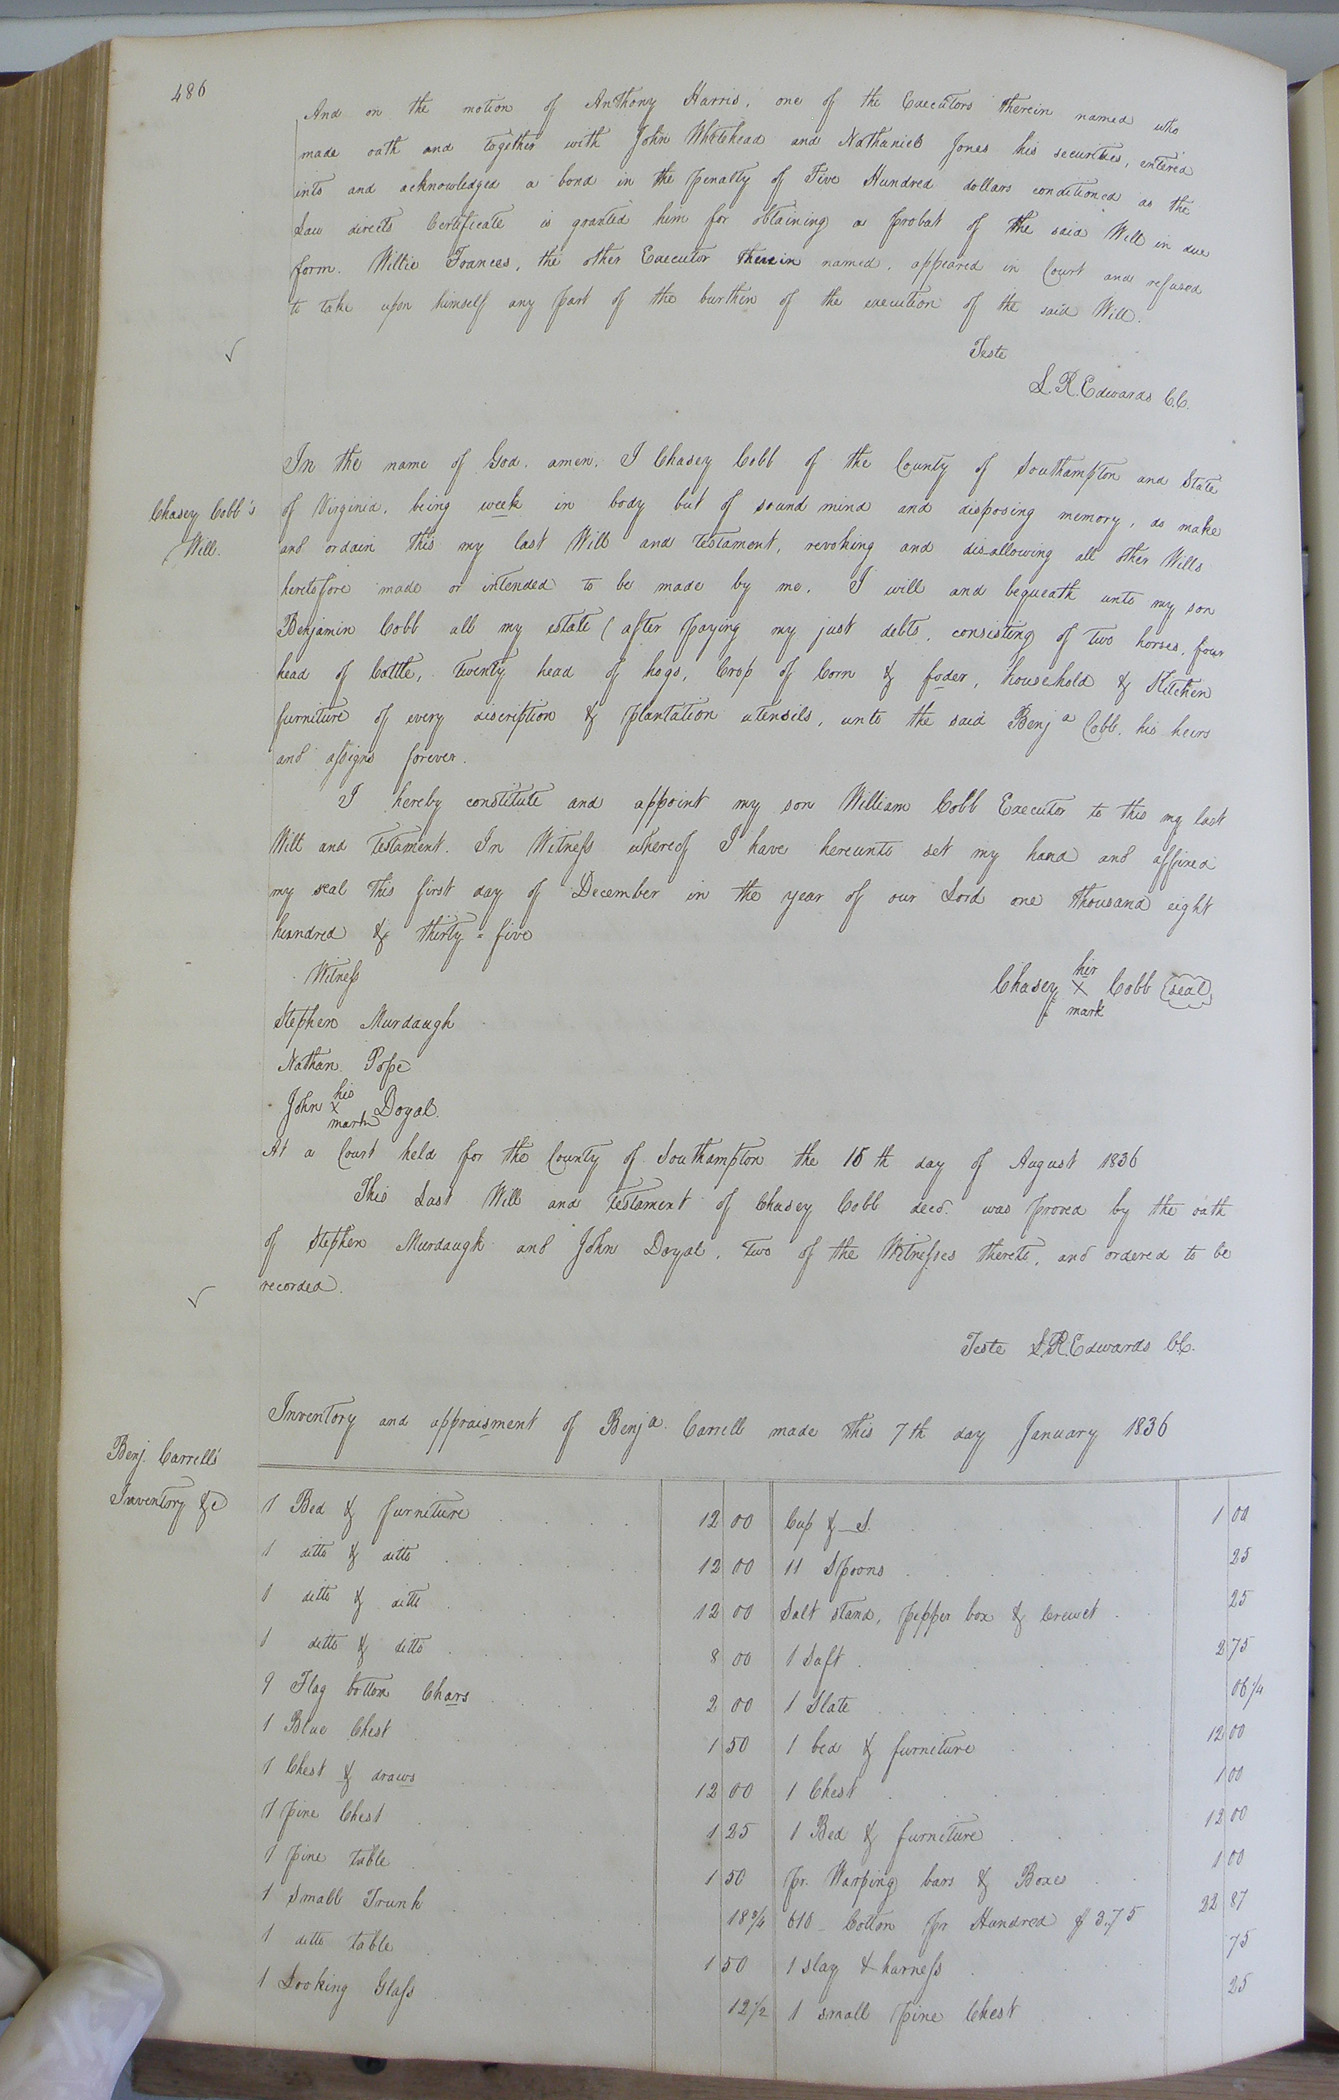 486
And on the motion of Anthony Harris, one of the Executors therein named who
made oath and together with John Whitehead and Nathaniel Jones his securities, entered
into and acknowledged a bond in the penalty of Five Hundred dollars conditioned as the
Law directs Certificate is granted him for obtaining a probat of the said Will in due
form. Willie Frances, the other Executor therein named, appeared in Court and refused
to take upon himself any part of the burthen of the execution of the said Will.
Teste
L. R. Edwards C.C.
Chasey Cobb's
Will.
In the name of God, amen. I Chasey Cobb of the County of Southampton and State
of Virginia, being week in body but of sound mind and disposing memory, do make
and ordain this my last Will and testament, revoking and disallowing all other Wills
heretofore made or intended to be made by me. I will and bequeath unto my son
Benjamin Cobb all my estate ( after paying my just debts, consisting of two horses, four
head of Cattle, twenty head of hogs, Crop of Corn & foder, household & Kitchen
furniture of every discription & plantation utensils, unto the said Benja Cobb, his heirs
and assigns forever.
I hereby constitute and appoint my son William Cobb Executor to this my last
Will and testament. In Witness whereof I have hereunto set my hand and affixed
my seal this first day of December in the year of our Lord one thousand eight
hundred & thirty = five
Witness
Chasey her X mark Cobb seal
Stephen Murdaugh
Nathan Pope
John his X mark Doyal.
At a Court held for the County of Southampton the 15th day of August 1836
This Last Will and testament of Chasey Cobb decd. was proved by the oath
of Stephen Murdaugh and John Doyal, two of the Witnesses thereto, and ordered to be
recorded.
Teste L.R. Edwards C.C.
Benj. Carrell's
Inventory &c
Inventory and appraisment of Benja. Carrell made this 7th day January 1836
1 Bed & furniture 12 00 Cup & S. 1 00
1 ditto & ditto 12 00 11 Spoons 25
1 ditto & ditto 12 00 Salt stand, pepper box & Crewet 25
1 ditto & ditto 8 00 1 Saft 2 75
9 Flag bottom Chars 2 00 1 Slate 06 1/4
1 Blue Chest 1 50 1 bed & furniture 12 00
1 Chest & draws 12 00 1 Chest 1 00
1 pine Chest 1 25 1 Bed & furniture 12 00
1 pine table 1 50 pr. Warping bars & Boxes 1 00
1 Small Trunk 18 3/4 610 Cotton pr Hundred $ 3.75 22 87
1 ditto table 1 50 1 slay & harness 75
1 Looking Glass 12 1/2 1 small pine Chest 25